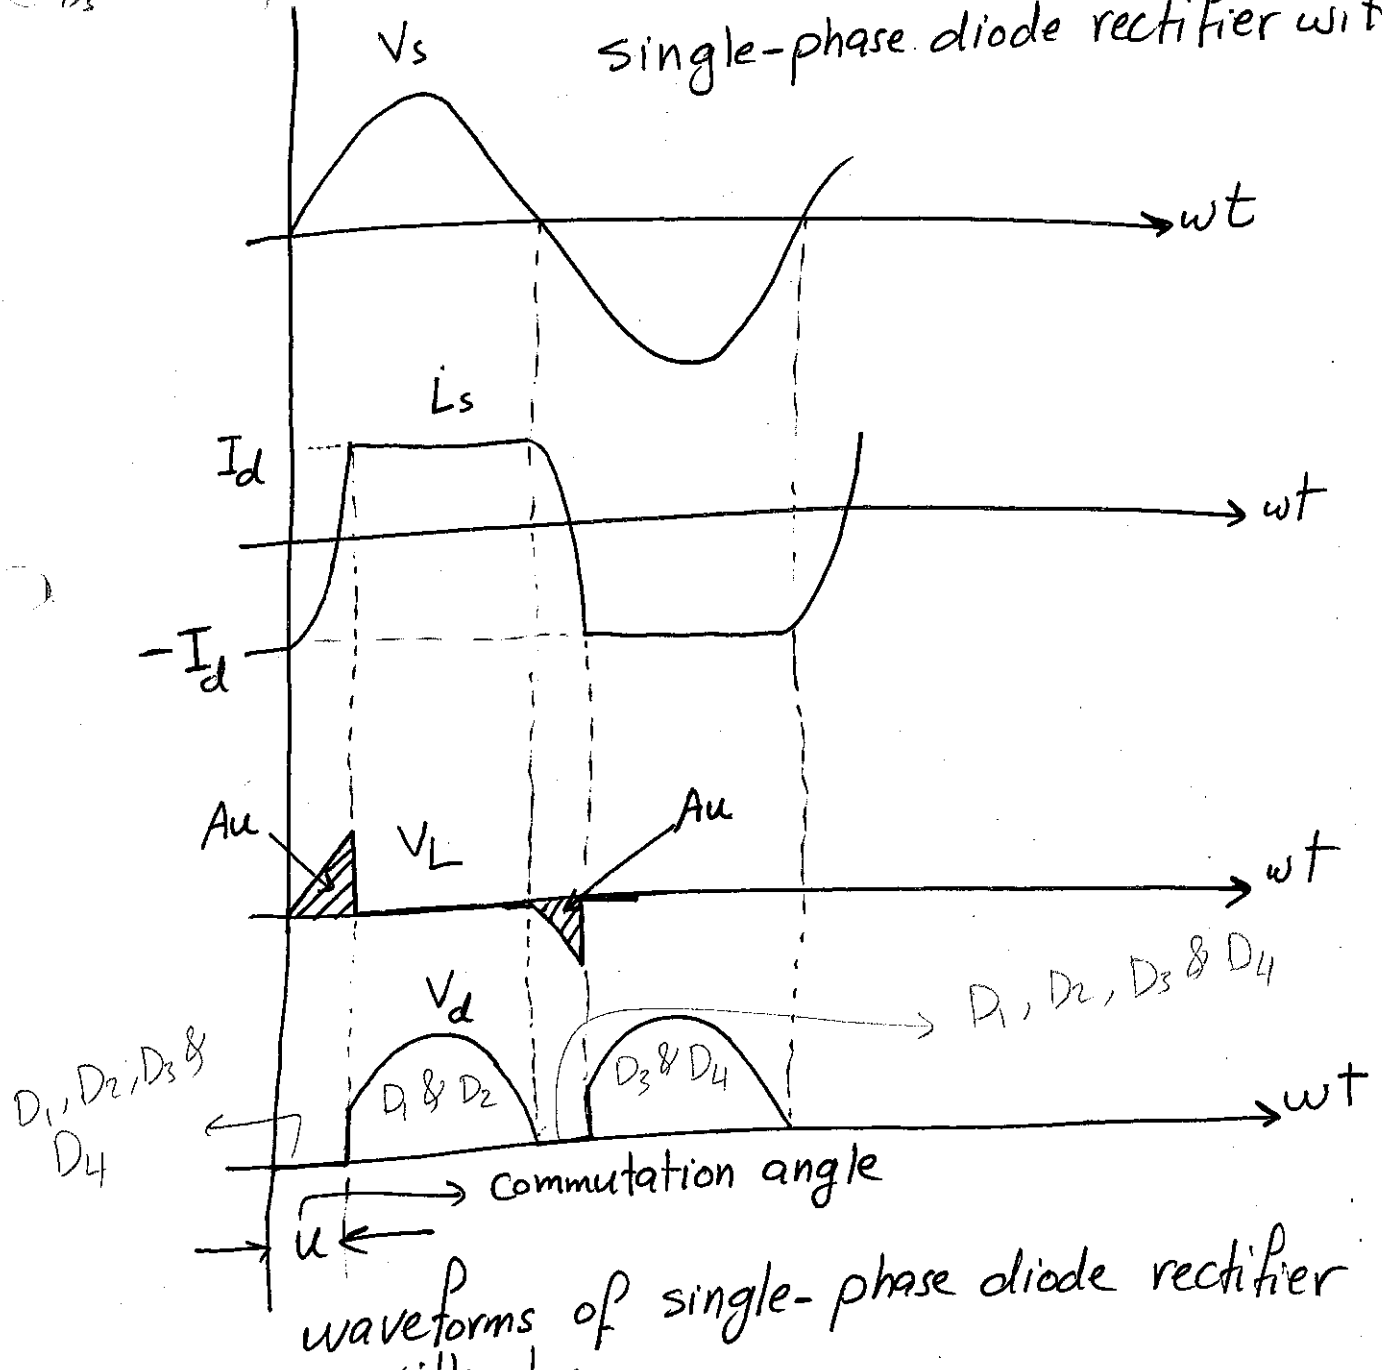 Vs
single-phase diode rectifier wit
wt
is
Id
wt
-Id
Au
VL
Au
wt
Vd
D1, D2, D3 & D4
D1, D2, D3 &
D4
D1 & D2
D3 & D4
wt
commutation angle
u
waveforms of single-phase diode rectifier